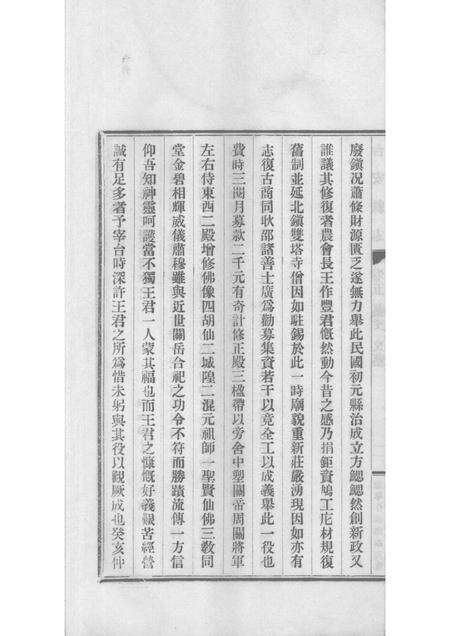 廢鎮况蕭條財源匱乏遂無力舉此民國初元縣治成立方鰓鰓然創新政又
誰議其修復者農會長王作豐君慨然動今昔之感乃捐鉅資鳩工庀材規復
舊制並延北鎮雙塔寺僧因如駐錫於此一時廟貌重新莊嚴湧現因如亦有
志復古商同耿邵諸善士廣爲勸募集資若干以竟全工以成義舉此一役也
費時三閱月募款二千元有奇計修正殿三楹帶以旁舍中塑關帝周關將軍
左右侍東西二殿增修佛像四胡仙二城隍二混元祖師一聖賢仙佛三敎同
堂金碧相輝威儀肅穆雖與近世關岳合祀之功令不符而勝蹟流傳一方信
仰吾知神靈呵護當不獨王君一人蒙其福也而王君之慷慨好義艱苦經營
誠有足多者予宰台時深許王君之所爲惜未躬與其役以觀厥成也癸亥仲